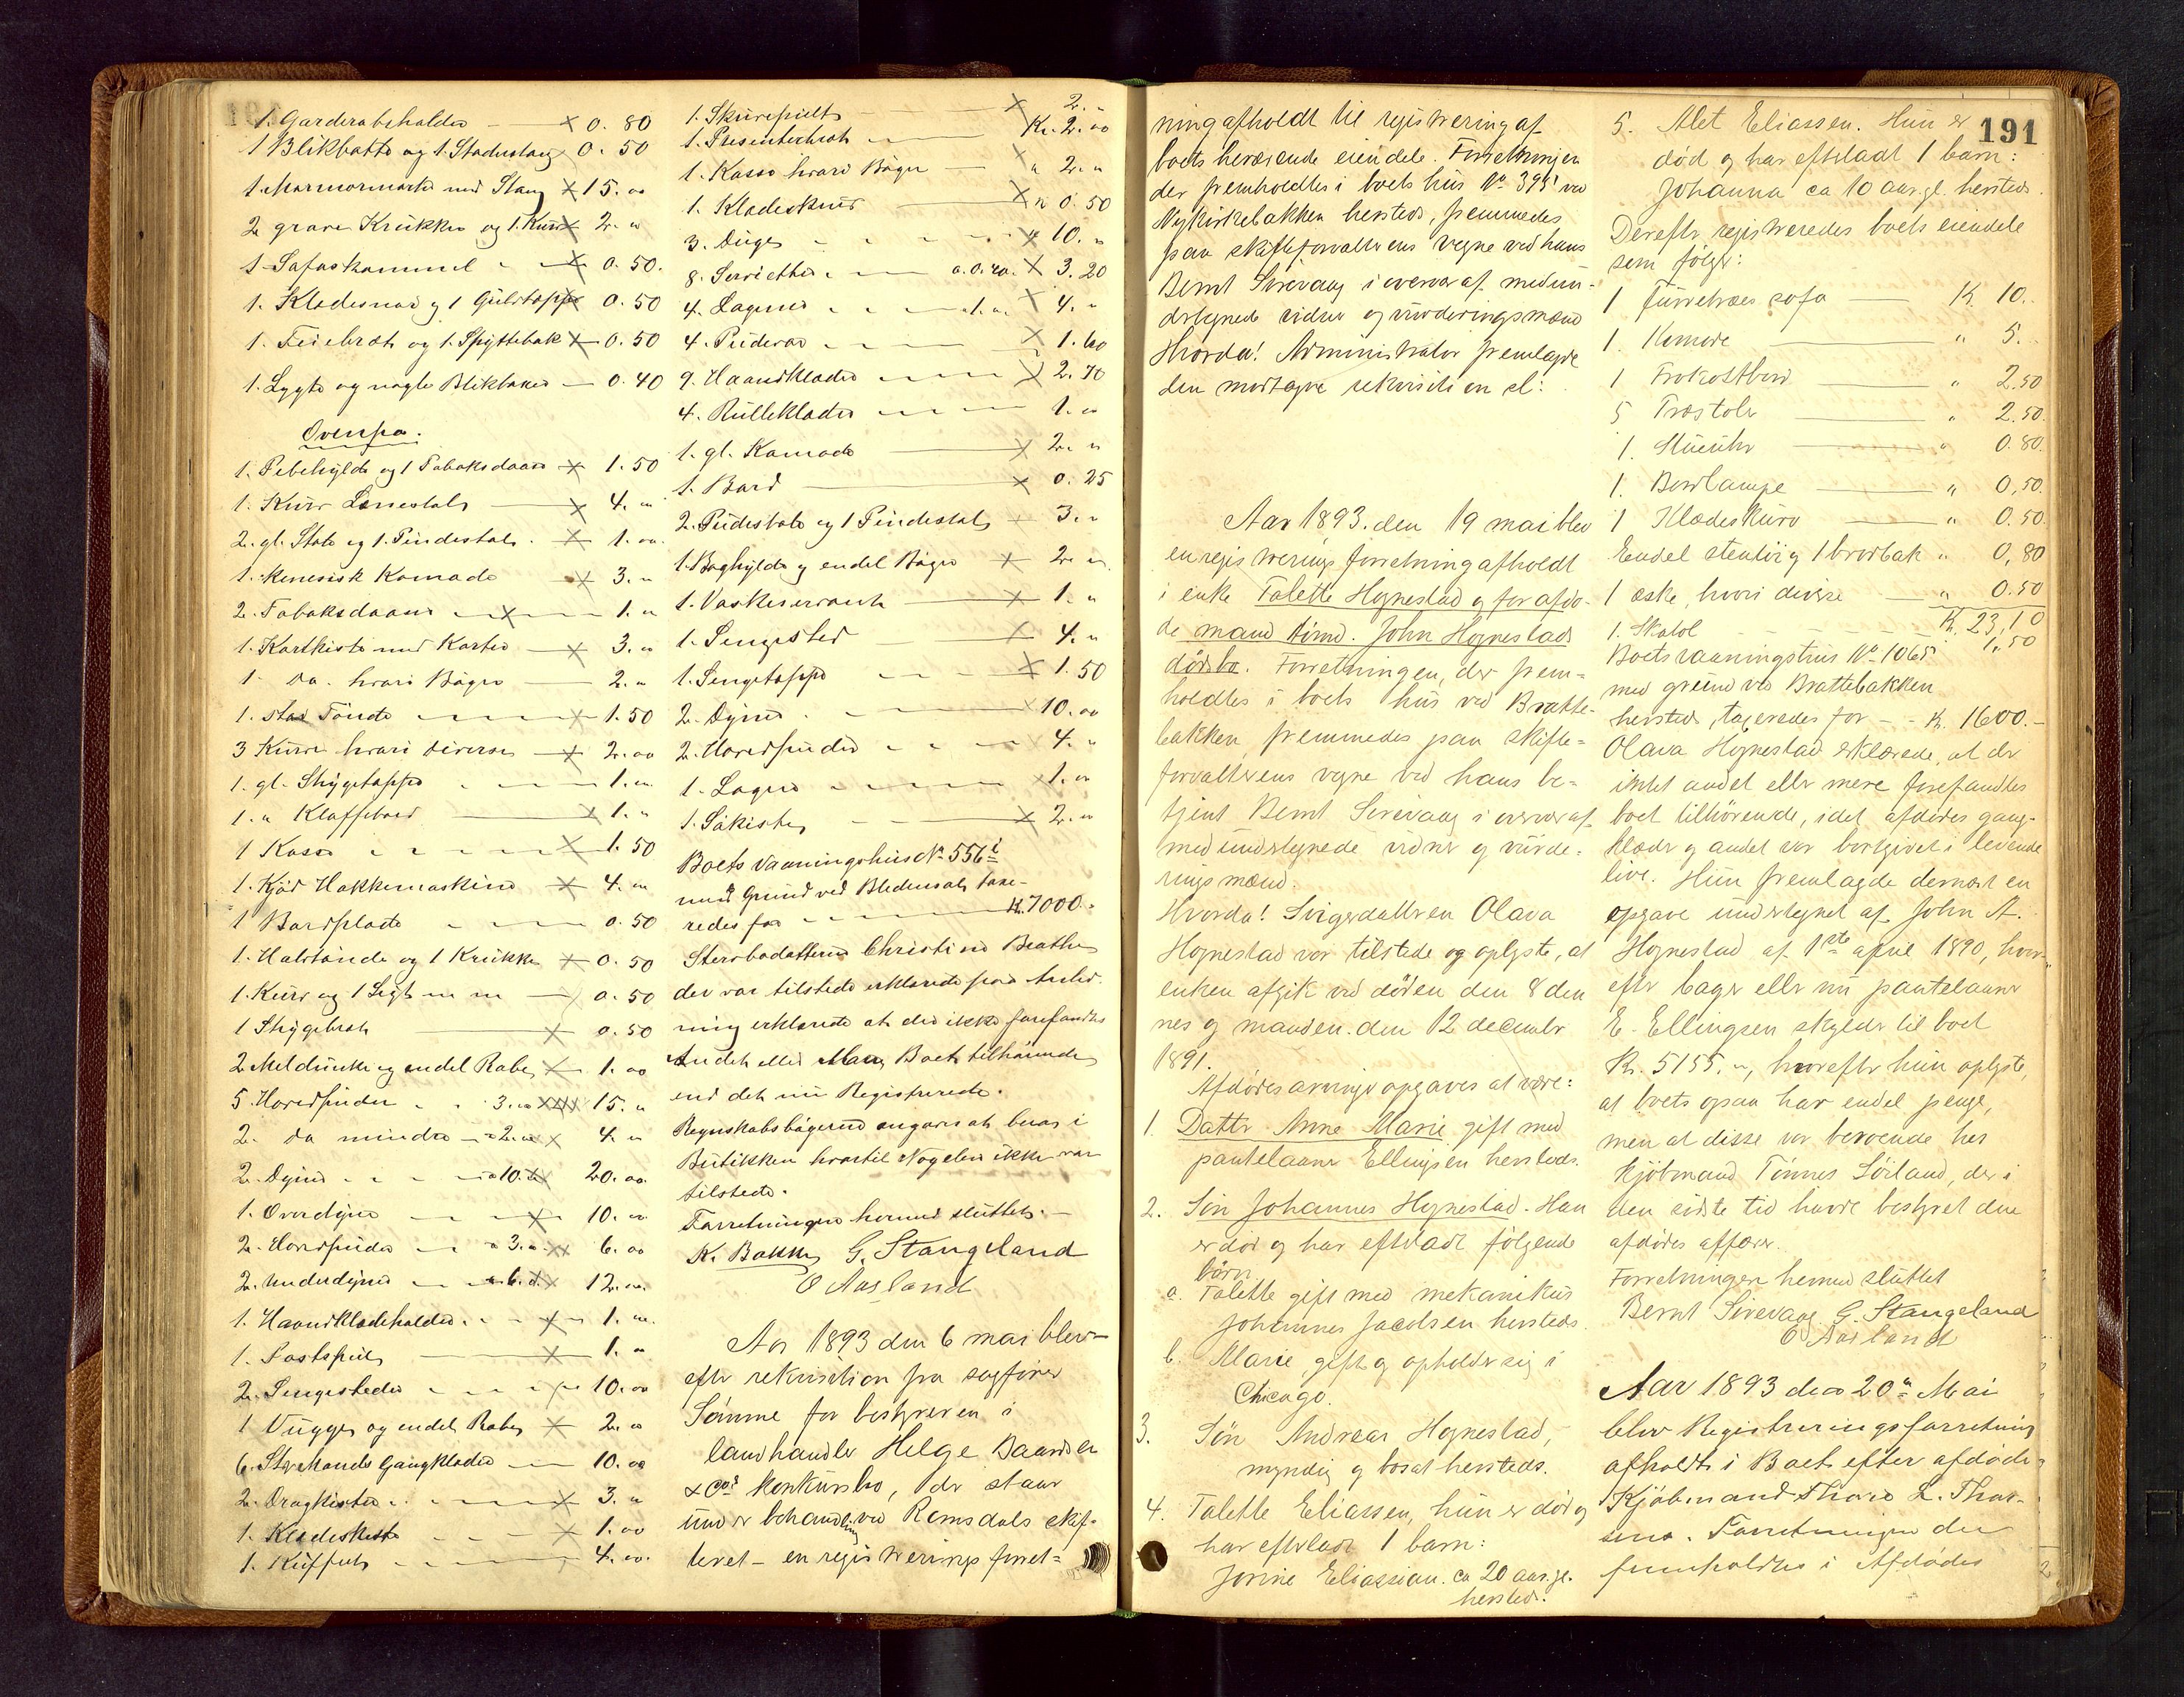 1. Garderobeholder — 0. 80
1 Blikbøtte og 1. Stadustang 0. 50
1. Marmormorter med Stang 15. 00
2 graae Krukker og 1. Kurv 2. "
1. Sofaskammel 0. 50.
1. Klædesnor og 1 Gulvtæppe 0. 50
1. Feiebræt og 1. Spyttebak 0. 50
1. Lygte og nogle Blikbakker — 0. 40
Ovenpa.
1. Pibehylde og 1 Tobaksdaase 1. 50
1. Kurv Lænestol 4. "
2. gl. Stole og 1. Pindestol. 1. 00.
1. kinesisk Komode 3. "
2. Tobaksdaaser 1. "
1. Kortkiste med Korter 3. "
1 do. hvori Bøger 2. "
1. stor Tønde 1. 50
3 Kurve hvori diverse 2. 00
1. gl. Skygetæppe 1. "
1. " Klaffebord 1. "
1 Kasse 1. 50
1. Kjød Hakkemaskine 4. "
1 Bordplade 0. 50
1. Halvtønde og 1 Krukke 0. 50
1. Kurv og 1 Sigt m m 0. 50
1 Strygebræt 0. 50
2 Meldunke og endel Rabe 1. 00
5 Hovedpuder 3. " 15. "
2. do mindre 2. " 4. "
2. Dyner à 10. " 20. 00.
1. Overdyne 10. "
2. Hovedpuder à 3. " 6. 00
2. Underdyner à 6. " 12. 00.
1. Haandklædeholder 1. "
1. Fastspil 1. "
2. Sengesteder 10. 00
1 Vugge og endel Rabe 2. "
6. Stk Mands Gangklæder 10. 00
2. Dragkister 3. "
1. Klædeskiste 1. 00
1. Kuffert 4. 00.
1. Skurepult 2. "
1. Presenterbræt Kr. 2. 00
1. Kasse hvori Bøger " 2. "
1. Klædeskurv " 0. 50
3. Duge " 10. "
8. Servietter a. 0. 40. 3. 20
4. Lagener a 1. " 4. "
4. Pudevar 1. 60
9. Haandklæder 2. 70
4. Rulleklæder 1. "
1. gl. Komode 2. "
1. Bord 0. 25
2. Pudestole og 1 Pindestol 3. "
1. Boghylde og endel Bøger 2. "
1. Vaskeservante 1. "
1. Sengested 4. "
1. Sengetæppe 1. 50
2. Dyner 10. 00
2. Hovedpuder 4. "
1. Lagen 1. "
1. Søkiste 2. "
Boets Vaaningshus No 556
med Grund ved Bledensol, taxe-
redes for Kr. 7000. "
Stervbodatteren Christine Beathe
der var tilstede erklærede paa Anled-
ning erklærede at der ikke forefandtes
Andet eller Mere Boet tilhørende
end det nu Registrerede.
Regnskabsbøgerne angaves at bero i
Butikken hvortil Nøglen ikke var
tilstede.
Forretningen hermed sluttet. —
K. Bakke G. Stangeland
O Aasland
Aar 1893 den 6 mai blev
efter rekvisition fra sagfører
Sømme for bestyreren i
landhandler Helge Baardsen
& Co's konkursbo, der staar
under behandling ved Romsdals skif-
teret — en registrerings forret-
ning afholdt til registrering af
boets herværende eiendele. Forretningen
der fremholdtes i boets hus No. 395 ved
Nykirkebakken hersteds, fremmedes
paa skifteforvalterens vegne ved hans
Bernt Sirevaag i overvær af medun-
dertegnede vidner og vurderingsmænd
Hvorda! Administrator fremlagde
den modtagne rekvisition sl:
Aar 1893. den 19 mai blev
en registrerings forretning afholdt
i enke Talette Hognestad og forafdø-
de mand tømd. John Hognestads
dødsbo. Forretningen, der frem-
holdtes i boets hus ved Bratte-
bakken, fremmedes paa skifte-
forvalterens vegne ved hans be-
tjent Bernt Sirevaag i overvær af
medundertegnede vidner og vurde-
ringsmænd.
Hvorda! Svigerdatteren Olava
Hognestad var tilstede og oplyste, at
enken afgik ved døden den 8 den
nes og manden den 12 december
1891.
Afdødes arvinger opgaves at være:
1. Datter Anne Marie gift med
pantelaaner Ellingsen hersteds.
2. Søn Johannes Hognestad. Han
er død og har efterladt følgende
børn
a. Talette gift med mekanikus
Johannes Jacobsen hersteds.
b. Marie gift og opholder sig i
Chicago.
3. Søn Andreas Hognestad,
myndig og bosat hersteds.
4. Talette Eliassen, hun er død og
har efterladt 1 barn:
Jorine Eliassen. ca 20 aar gl.
hersteds.
191
5. Alet Eliassen. Hun er
død og har efterladt 1 barn:
Johanna ca 10 aar gl. hersteds.
Derefter registreredes boets eiendele
som følger:
1 furretræes sofa K. 10.
1. Komode " 5.
1 Frokostbord " 2.50
5 Træstole " 2.50.
1. Stueuhr " 0.80.
1. Bordlampe " 0,50.
1 Klædeskurv " 0.50.
Endel stentøi og 1 brødbak " 0,80
1 æske, hvori diverse " 0.50
K. 23,10
1. Skatol 1,50
Boets vaaningshus No 1065
med grund ved Brattebakken
hersteds, taxeredes for K. 1600.
Olava Hognestad erklærede, at der
intet andet eller mere forefandtes
boet tilhørende, idet afdødes gang-
klæder og andet var bortgivet i levende
live. Hun fremlagde dernæst en
opgave undertegnet af John A.
Hognestad af 1ste april 1890, hvor-
efter bager eller nu pantelaaner
E. Ellingsen skylder til boet
Kr. 5155. ", hvorefter hun oplyste,
at boets ogsaa har endel penge,
men at disse var beroende hos
Kjøbmand Tønnes Sørland, der i
den sidste tid havde bestyret den
afdødes affærer.
Forretningen hermed sluttet
Bernt Sirevaag G. Stangeland
O Aasland
Aar 1893 den 20de Mai
blev Registreringsforretning
afholdt i Boet efter afdøde
Kjøbmand Thore L. Thor-
sen. Forretningen der
fremholdtes i Afdødes